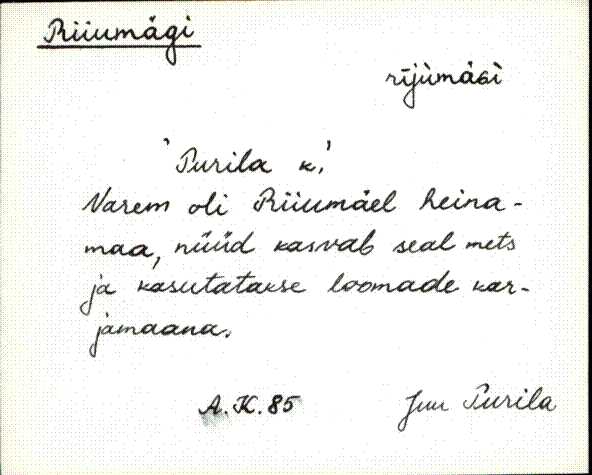 Riiumägi
rījùmäɢì
'Purila k.'
Varem oli Riiumäel heina-
maa, nüüd kasvab seal mets
ja kasutatakse loomade kar-
jamaana.
A.K.85 Juu Purila